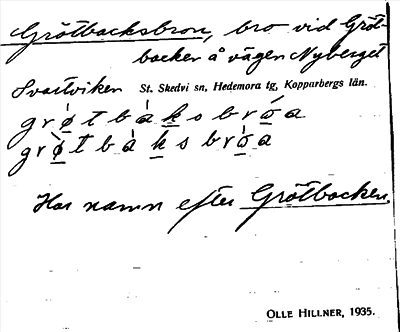 Grötbacksbron, bro vid Gröt-
backen å vägen Nyberget
Svartviken St. Skedvi sn, Hedemora tg, Kopparbergs län.
grø̀tbàksbróa
grø̀tbàksbròa
Har namn efter Grötbacken.
OLLE HILLNER, 1935.